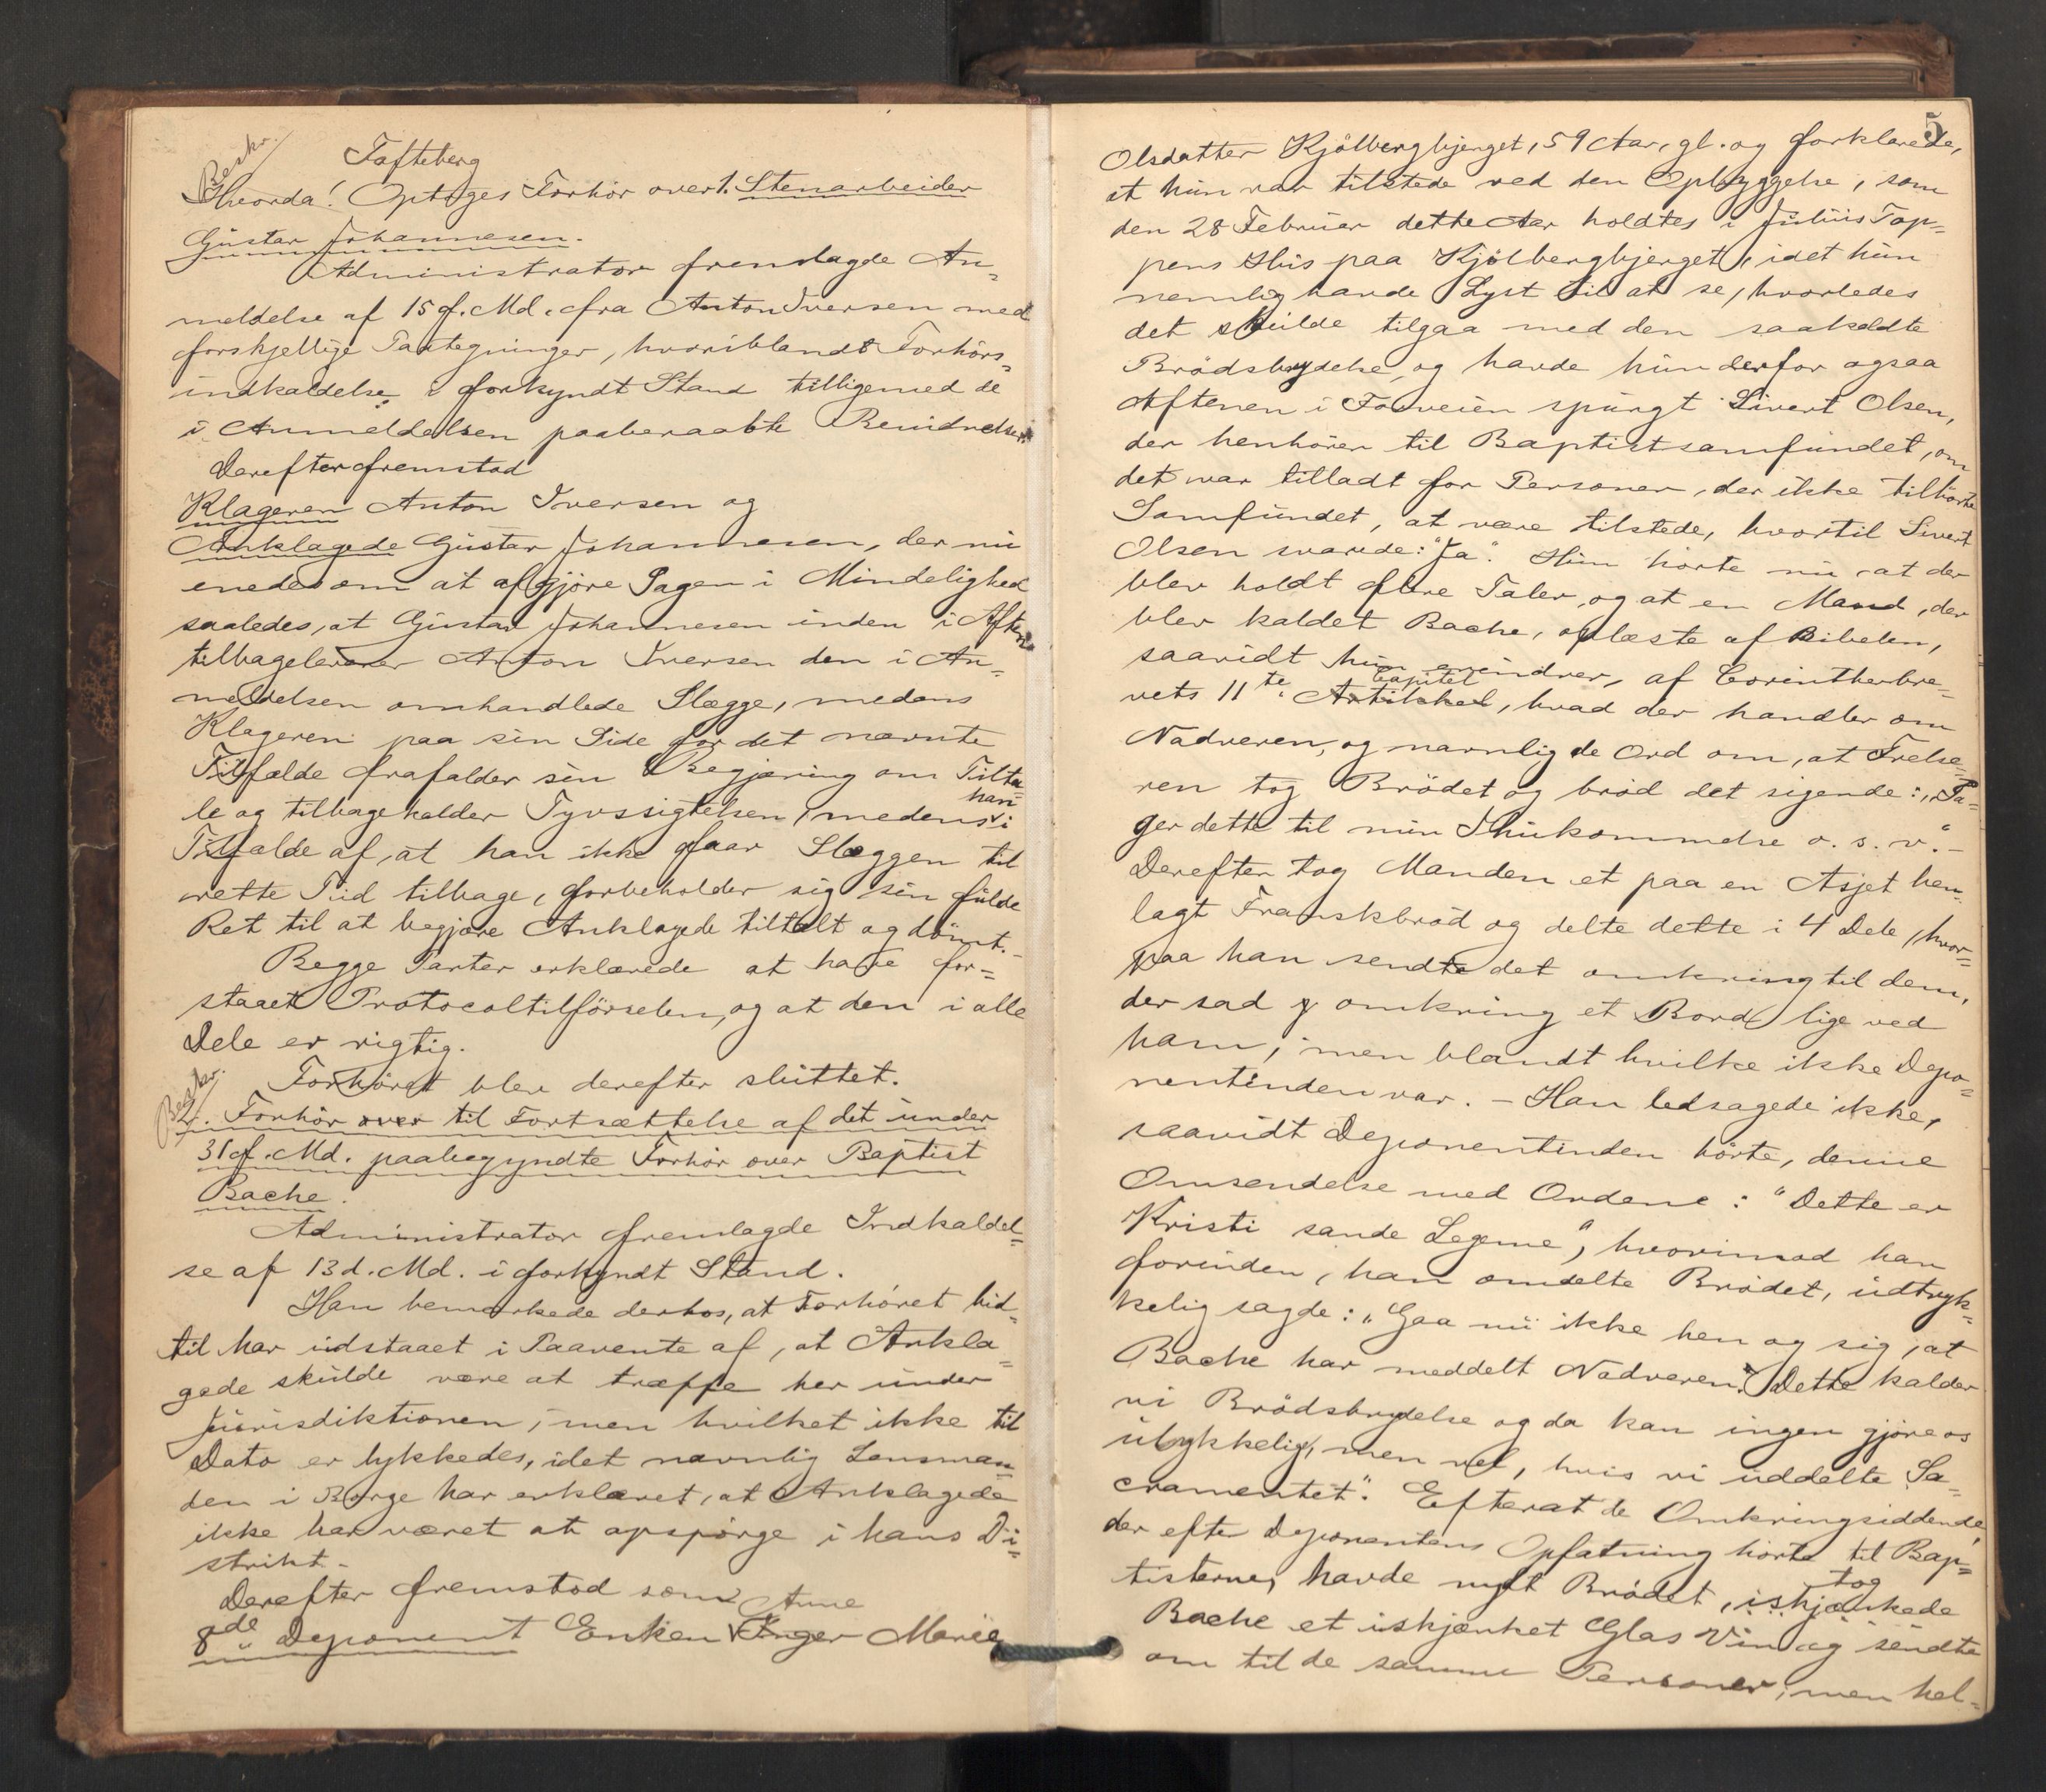 Beskr.
Tofteberg
Hvorda! Optoges Forhör over 1. Stenarbeider
Gustav Johannesen.
Administrator fremlagde An-
meldelse af 15 f. Md. fra Anton Iversen med
forskjellige Paategninger, hvoriblandt Forhörs-
indkaldelse i forkyndt Stand tilligemed de
i Anmeldelsen paaberaabte Bevidnelser.
Derefter fremstod
Klageren Anton Iversen og
Anklagede Gustav Johannesen, der nu
enedes om at afgjöre Sagen i Mindelighed
saaledes, at Gustav Johannesen inden i Aften
tilbageleverer Anton Iversen den i An-
meldelsen omhandlede Slægge, medens
Klageren paa sin Side for det nævnte
Tilfælde frafalder sin Begjæring om Tilta-
le og tilbagekalder Tyvssigtelsen, medens han i
Tilfælde af, at han ikke faar Slæggen til
rette Tid tilbage, forbeholder sig sin fulde
Ret til at begjære Anklagede tiltalt og dömt.-
Begge Parter erklærede at have for-
staaet Protocoltilförselen, og at den i alle
Dele er rigtig.
Forhöret blev derefter sluttet.
Beskr.
2. Forhör over til Fortsættelse af det under
31 f. Md. paabegyndte Forhör over Baptist
Bache.
Administrator fremlagde Indkaldel-
se af 13 d. Md. i forkyndt Stand.
Han bemærkede derhos, at Forhöret hid-
til har udstaaet i Paavente af, at Ankla-
gede skulde være at træffe her under
Jurisdiktionen, men hvilket ikke til
Dato er lykkedes, idet navnlig Lensman-
den i Borge har erklæret, at Anklagede
ikke har været at opspörge i hans Di-
strikt.-
Derefter fremstod som
8de Deponent Enken Anne Inger Marie
5
Olsdatter Kjölbergbjerget, 59 Aar, gl. og forklarede,
at hun var tilstede ved den Opbyggelse, som
den 28 Februar dette Aar holdtes i Julius Top-
pens Hus paa Kjölbergbjerget, idet hun
nemlig havde Lyst til at se, hvorledes
det skulde tilgaa med den saakaldte
Brödsbrydelse, og havde hun derfor ogsaa
Aftenen i Forveien spurgt Sivert Olsen,
der henhörer til Baptistsamfundet, om
det var tilladt for Personer, der ikke tilhörte
Samfundet, at være tilstede, hvortil Sivert
Olsen svarede: "Ja". Hun hörte nu, at der
blev holdt flere Taler, og at en Mand, der
blev kaldet Bache, oplæste af Bibelen,
saavidt hun erindrer, af Corintherbre-
vets 11te Artikkel Capitel, hvad der handler om
Nadveren, og navnlig de Ord om, at Frelse-
ren tog Brödet og bröd det sigende: „Ta-
ger dette til min Ihukommelse o. s. v."-
Derefter tog Manden et paa en Asjet hen-
lagt Franskbröd og delte dette i 4 Dele, hvor-
paa han sendte det omkring til dem,
der sad omkring et Bord lige ved
ham, men blandt hvilke ikke Depo-
nentinden var. - Han ledsagede ikke,
saavidt Deponentinden hörte, denne
Omsendelse med Ordene: "Dette er
Kristi sande Legeme", hvorimod han
forinden, han omdelte Brödet, udtryk-
kelig sagde: „Gaa nu ikke hen og sig, at
Bache har meddelt Nadveren. Dette kalder
vi Brödsbrydelse og da kan ingen gjöre os
ulykkelig, men vel, hvis vi uddelte Sa-
cramentet". Efterat de Omkringsiddende,
der efter Deponentens Opfatning hörte til Bap-
tisterne, havde nydt Brödet, iskjænkede tog
Bache et iskjænket Glas Vin og sendte
om til de samme Personer, men hel-